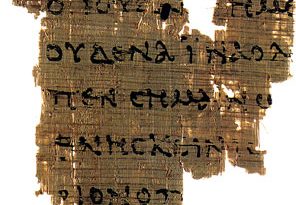 ΟΙ ΙΟΥΔΑΙ ΗΜ
ΟΥΔΕΝΑ ΪΝΑ Ο Λ
ΠΕΝ ϹΗΜΑΙΝΩ
ΘΝΗϹΚΕΙΝ ΙϹ
ΡΙΟΝ Ο Π